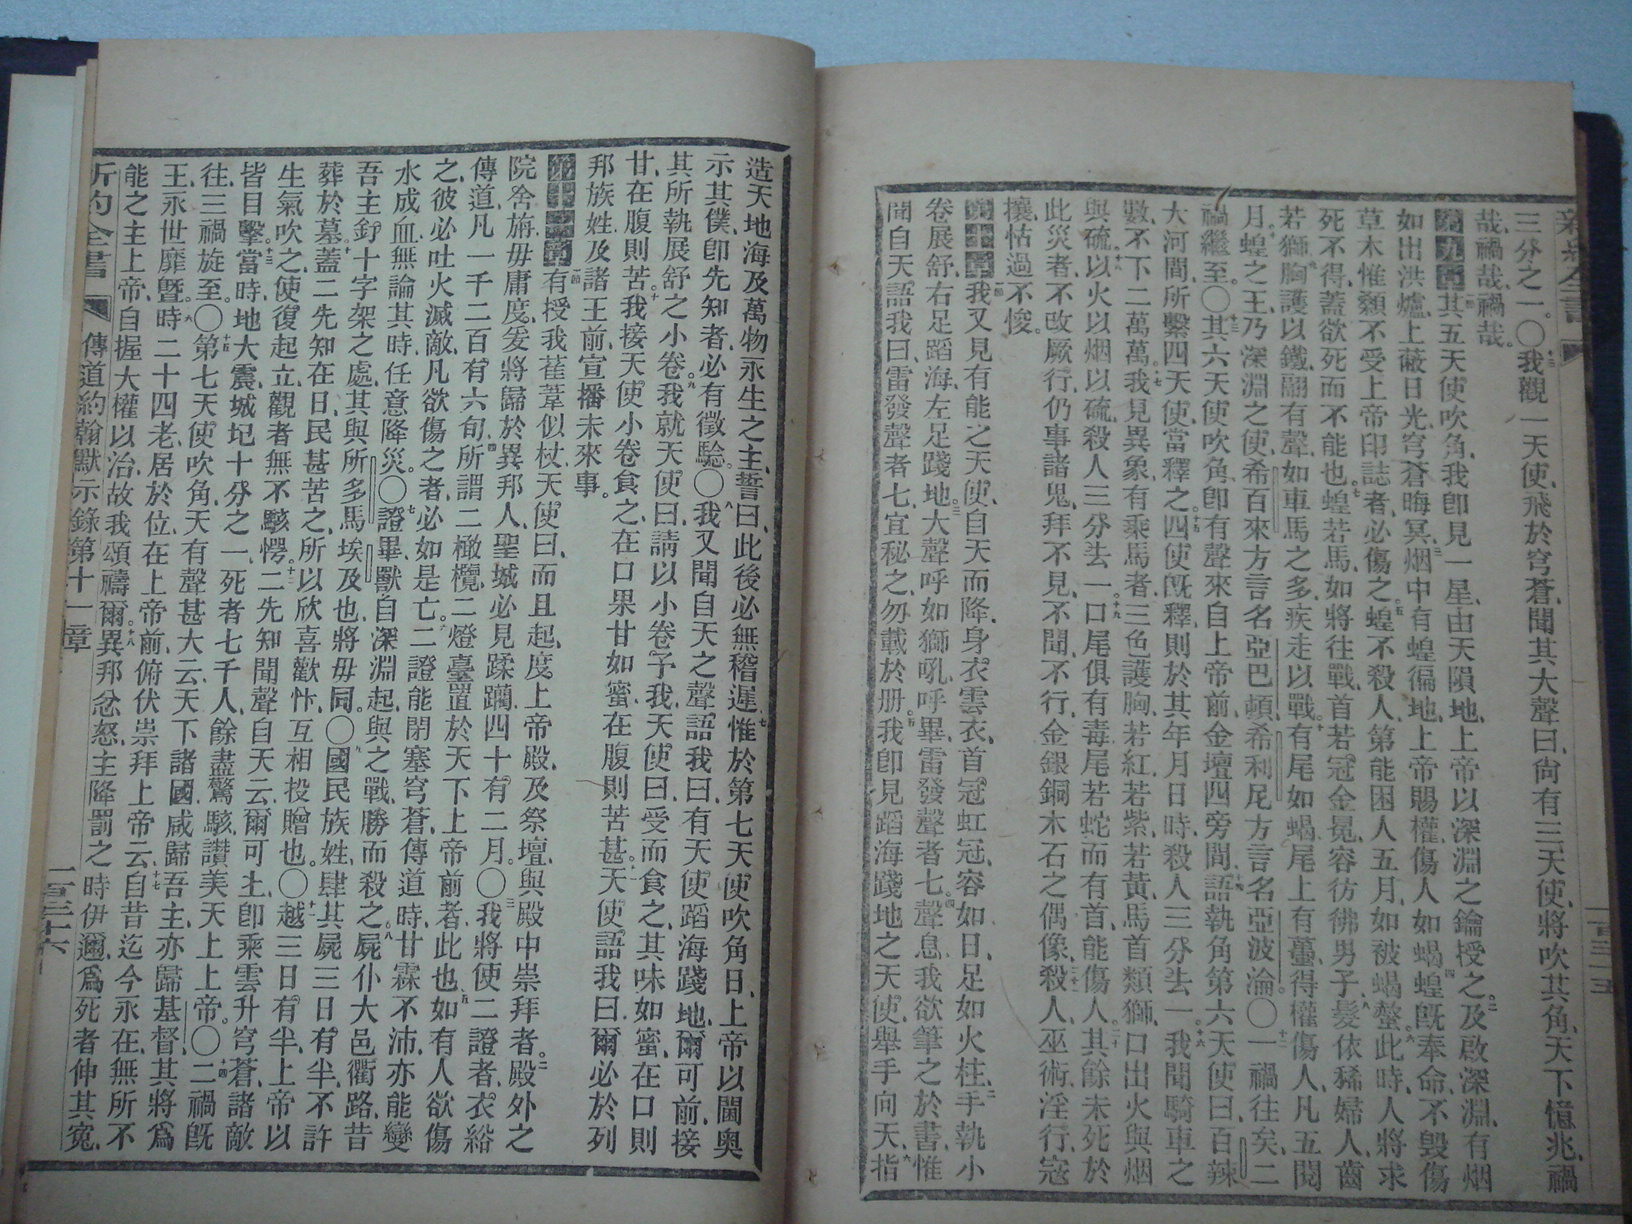 新約全書
一百三十五
三分之一、〇我觀一天使、飛於穹蒼、聞其大聲曰、尙有三天使、將吹其角、天下億兆、禍
哉、禍哉、禍哉。
第九章其五天使吹角、我卽見一星、由天隕地、上帝以深淵之鑰授之、及啟深淵、有烟
如出洪爐、上蔽日光、穹蒼晦冥、烟中有蝗徧地、上帝賜權傷人如蝎、蝗旣奉命、不毀傷
草木、惟顙不受上帝印誌者、必傷之、蝗不殺人、第能困人五月、如被蝎螫、此時、人將求
死不得、蓋欲死而不能也、蝗若馬、如將往戰、首若冠金冕、容彷彿男子、髮依稀婦人、齒
若獅、胸護以鐵、翮有聲、如車馬之多、疾走以戰、有尾如蝎、尾上有蠆、得權傷人、凡五閱
月、蝗之王、乃深淵之使、希百來方言名亞巴頓、希利尼方言名亞波淪、〇一禍往矣、二
禍繼至、〇其六天使吹角、卽有聲來自上帝前、金壇四旁間、語執角第六天使曰、百辣
大河間、所繫四天使、當釋之、四使旣釋、則於其年月日時、殺人三分去一、我聞騎車之
數、不下二萬萬、我見異象、有乘馬者、三色護胸、若紅、若紫、若黃、馬首類獅、口出火與烟
與硫、以火以烟以硫、殺人三分去一、口尾俱有毒、尾若蛇而有首、能傷人、其餘未死於
此災者、不改厥行、仍事諸鬼、拜不見、不聞、不行、金銀銅木石之偶像、殺人、巫術、淫行、寇
攘、怙過不悛。
第十章我又見有能之天使、自天而降、身衣雲衣、首冠虹冠、容如日、足如火柱、手執小
卷展舒、右足蹈海、左足踐地、大聲呼如獅吼、呼畢、雷發聲者七、聲息、我欲筆之於書、惟
聞自天語我曰、雷發聲者七、宜秘之、勿載於册、我卽見蹈海踐地之天使、舉手向天、指
造天地海及萬物永生之主、誓曰、此後必無稽遲、惟於第七天使吹角日、上帝以閫奧
示其僕、卽先知者、必有徵驗、〇我又聞自天之聲、語我曰、有天使蹈海踐地、爾可前、接
其所執展舒之小卷、我就天使曰、請以小卷予我、天使曰、受而食之、其味如蜜、在口則
甘、在腹則苦、我接天使小卷食之、在口果甘如蜜、在腹則苦甚、天使語我曰、爾必於列
邦族姓、及諸王前、宣播未來事。
第十一章有授我萑葦似杖、天使曰、而且起、度上帝殿、及祭壇、與殿中崇拜者、殿外之
院舍旃、毋庸度、爰將歸於異邦人、聖城必見蹂躪、四十有二月、〇我將使二證者、衣綌
傳道、凡一千二百有六旬、所謂二橄欖、二燈臺、置於天下上帝前者、此也、如有人欲傷
之、彼必吐火滅敵、凡欲傷之者、必如是亡、二證能閉塞穹蒼、傳道時、甘霖不沛、亦能變
水成血、無論其時、任意降災、〇證畢、獸自深淵起、與之戰、勝而殺之、屍仆大邑衢路、昔
吾主釘十字架之處、其與所多馬埃及也、將毋同、〇國民族姓、肆其屍三日有半、不許
葬於墓、蓋二先知在日、民甚苦之、所以欣喜歡忭、互相投贈也、〇越三日有半、上帝以
生氣吹之、使復起立、觀者無不駭愕、二先知聞聲自天云、爾可上、卽乘雲升穹蒼、諸敵
皆目擊、當時、地大震、城圮十分之一、死者七千人、餘盡驚駭、讚美天上上帝、〇二禍旣
往、三禍旋至、〇第七天使吹角、天有聲甚大、云、天下諸國、咸歸吾主、亦歸基督、其將爲
王、永世靡曁、時二十四老、居於位、在上帝前、俯伏崇拜上帝云、自昔迄今、永在、無所不
能之主上帝、自握大權以治、故我頌禱爾、異邦忿怒、主降罰之時伊邇、爲死者伸其寃、
新約全書 傳道約翰默示錄第十一章 一百三十六